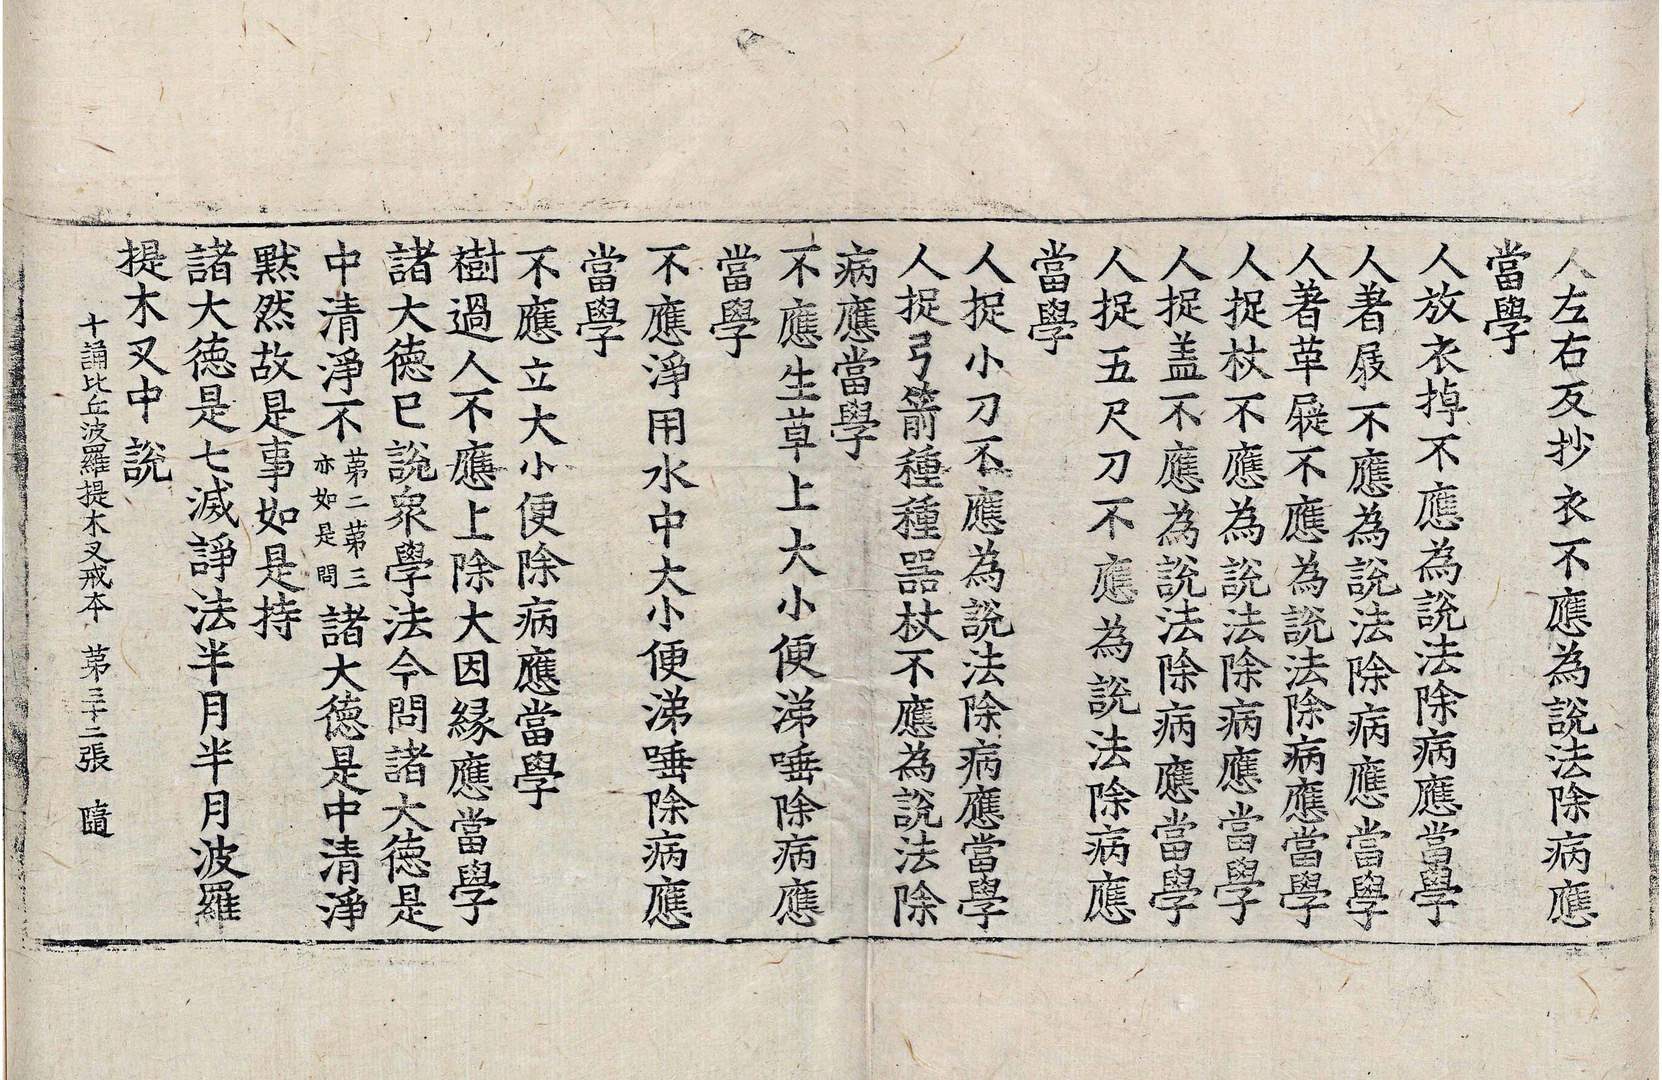 人左右反抄衣不應為說法除病應
當學
人放衣掉不應為說法除病應當學
人著屐不應為說法除病應當學
人著革屣不應為說法除病應當學
人捉杖不應為說法除病應當學
人捉盖不應為說法除病應當學
人捉五尺刀不應為說法除病應
當學
人捉小刀不應為說法除病應當學
人捉弓箭種種器杖不應為說法除
病應當學
不應生草上大小便涕唾除病應
當學
不應淨用水中大小便涕唾除病應
當學
不應立大小便除病應當學
樹過人不應上除大因緣應當學
諸大德已說眾學法今問諸大德是
中清淨不第二第三亦如是問諸大德是中清淨
默然故是事如是持
諸大德是七滅諍法半月半月波羅
提木叉中說
十誦比丘波羅提木叉戒本 第三十二張 隨